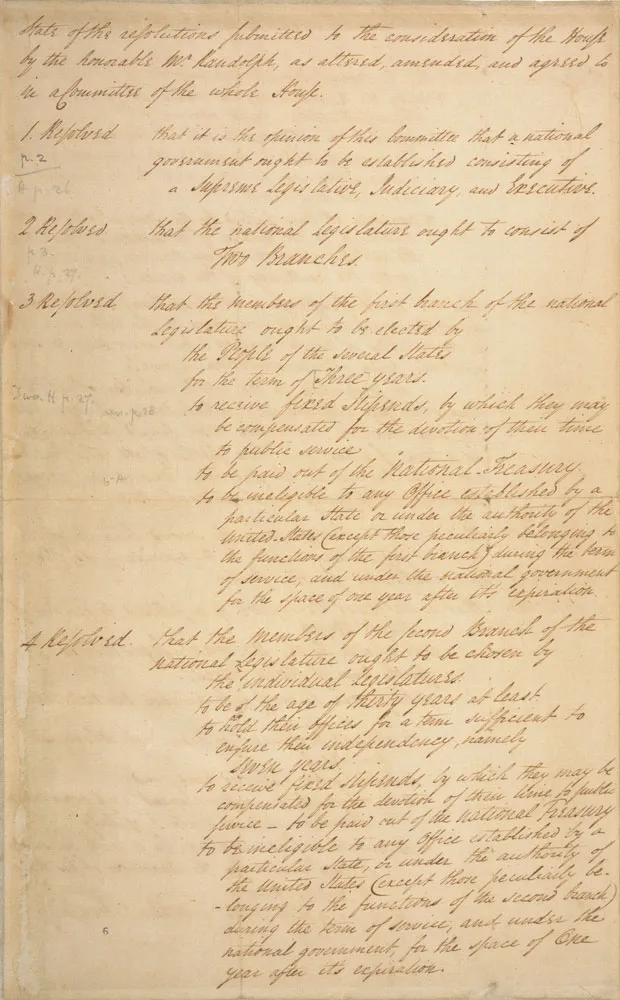 State of the resolutions submitted to the consideration of the House
by the honorable Mr Randolph, as altered, amended, and agreed to
in a Committee of the whole House.
1. Resolved that it is the opinion of this Committee that a national
p. 2 government ought to be established consisting of
A p. 26 a Supreme Legislative, Judiciary, and Executive.
2 Resolved. that the national Legislature ought to consist of
p. 3. Two Branches.
3 Resolved that the members of the first branch of the national
Legislature ought to be elected by
the People of the several States
for the term of Three years.
to receive fixed Stipends, by which they may
be compensated for the devotion of their time
to public service
to be paid out of the National-Treasury.
to be ineligible to any Office established by a
particular State or under the authority of the
United-States (except those peculiarly belonging to
the functions of the first branch) during the term
of service, and under the national government
for the space of one year after its expiration.
4 Resolved. that the members of the second Branch of the
national Legislature ought to be chosen by
the individual Legislatures.
to be of the age of thirty years at least
to hold their offices for a term sufficient to
ensure their independency, namely
seven years.
to receive fixed Stipends, by which they may be
compensated for the devotion of their time to public
service - to be paid out of the National Treasury
to be ineligible to any Office established by a
particular State, or under the authority of
the United States (except those peculiarly be-
-longing to the functions of the second branch)
during the term of service, and under the
6 national government, for the space of One
year after its expiration.